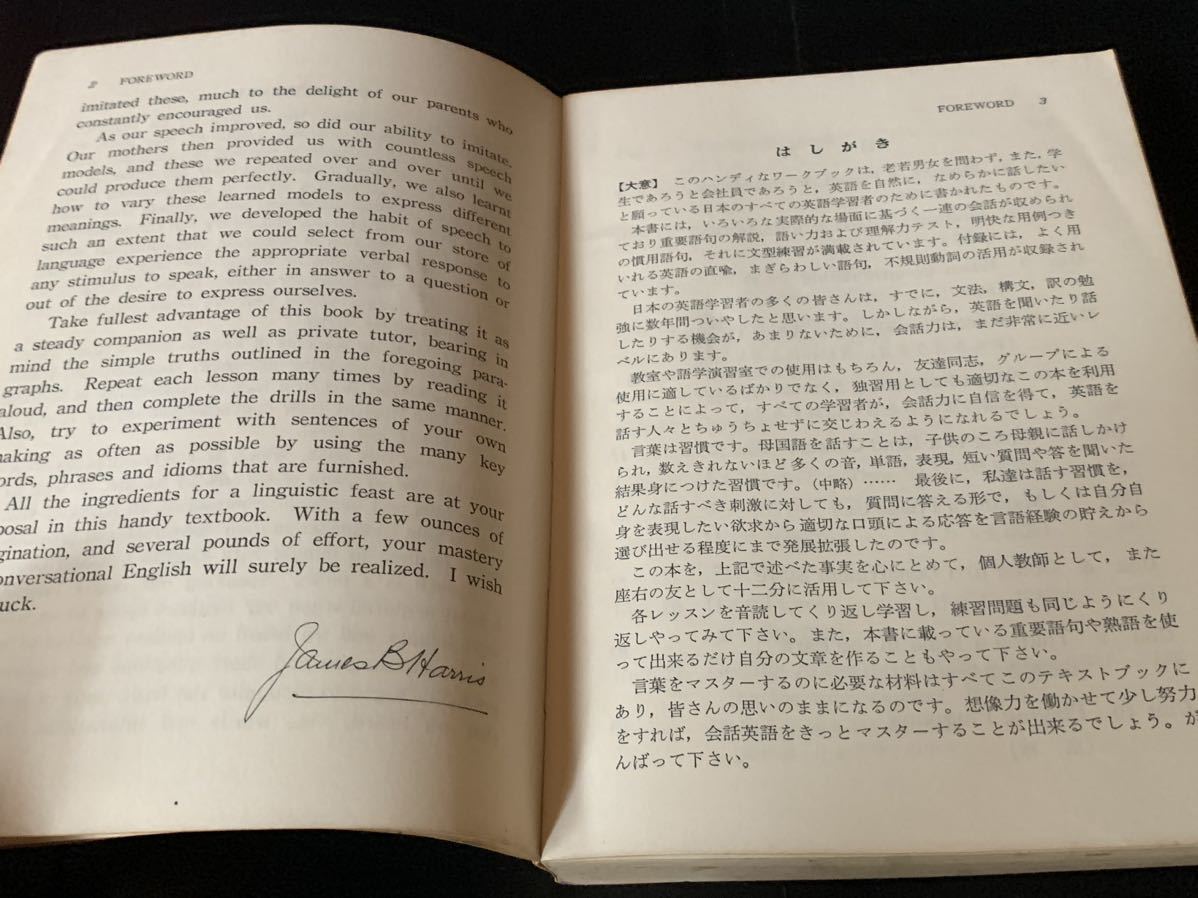 2 FOREWORD
imitated these, much to the delight of our parents who
constantly encouraged us.
As our speech improved, so did our ability to imitate.
Our mothers then provided us with countless speech
models, and these we repeated over and over until we
could produce them perfectly. Gradually, we also learnt
how to vary these learned models to express different
meanings. Finally, we developed the habit of speech to
such an extent that we could select from our store of
language experience the appropriate verbal response to
any stimulus to speak, either in answer to a question or
out of the desire to express ourselves.
Take fullest advantage of this book by treating it as
a steady companion as well as private tutor, bearing in
mind the simple truths outlined in the foregoing para-
graphs. Repeat each lesson many times by reading it
aloud, and then complete the drills in the same manner.
Also, try to experiment with sentences of your own
making as often as possible by using the many key
ords, phrases and idioms that are furnished.
All the ingredients for a linguistic feast are at your
posal in this handy textbook. With a few ounces of
gination, and several pounds of effort, your mastery
onversational English will surely be realized. I wish
uck.
James B Harris
FOREWORD 3
はしがき
【大意】 このハンディなワークブックは，老若男女を問わず，また，学
生であろうと会社員であろうと，英語を自然に，なめらかに話したい
と願っている日本のすべての英語学習者のために書かれたものです。
本書には，いろいろな実際的な場面に基づく一連の会話が収められ
ており重要語句の解説，語い力および理解力テスト，明快な用例つき
の慣用語句，それに文型練習が満載されています。付録には，よく用
いれる英語の直喩，まぎらわしい語句，不規則動詞の活用が収録され
ています。
日本の英語学習者の多くの皆さんは，すでに，文法，構文，訳の勉
強に数年間ついやしたと思います。しかしながら，英語を聞いたり話
したりする機会が，あまりないために，会話力は，まだ非常に近いレ
ベルにあります。
教室や語学演習室での使用はもちろん，友達同志，グループによる
使用に適しているばかりでなく，独習用としても適切なこの本を利用
することによって，すべての学習者が，会話力に自信を得て，英語を
話す人々とちゅうちょせずに交じわえるようになれるでしょう。
言葉は習慣です。母国語を話すことは，子供のころ母親に話しかけ
られ，数えきれないほど多くの音，単語，表現，短い質問や答を聞いた
結果身につけた習慣です。（中略）…… 最後に，私達は話す習慣を，
どんな話すべき刺激に対しても，質問に答える形で，もしくは自分自
身を表現したい欲求から適切な口頭による応答を言語経験の貯えから
選び出せる程度にまで発展拡張したのです。
この本を，上記で述べた事実を心にとめて，個人教師として，また
座右の友として十二分に活用して下さい。
各レッスンを音読してくり返し学習し，練習問題も同じようにくり
返しやってみて下さい。また，本書に載っている重要語句や熟語を使
って出来るだけ自分の文章を作ることもやって下さい。
言葉をマスターするのに必要な材料はすべてこのテキストブックに
あり，皆さんの思いのままになるのです。想像力を働かせて少し努力
をすれば，会話英語をきっとマスターすることが出来るでしょう。が
んばって下さい。